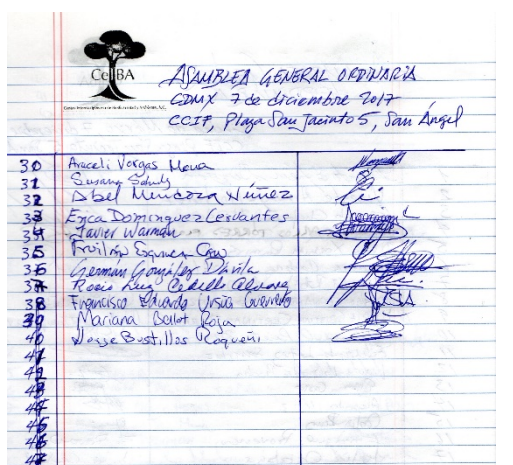 CeIBA
ASAMBLEA GENERAL ORDINARIA
CDMX 7 de diciembre 2017
CCIF, Plaza San Jacinto 5, San Ángel
30 Araceli Vargas Mena
31 Susana
32 Abel Mendoza Núñez
33 Erica Dominguez Cervantes
34 Javier Warman
35 Esquivel
36 German González Dávila
37 Rosío Luz Cedillo Alvarez
38 Francisco Eduardo Ursúa Guerrero
39 Mariana Rojas
40 Jorge Bustillos Roqueñi
41
42
43
44
45
46
47